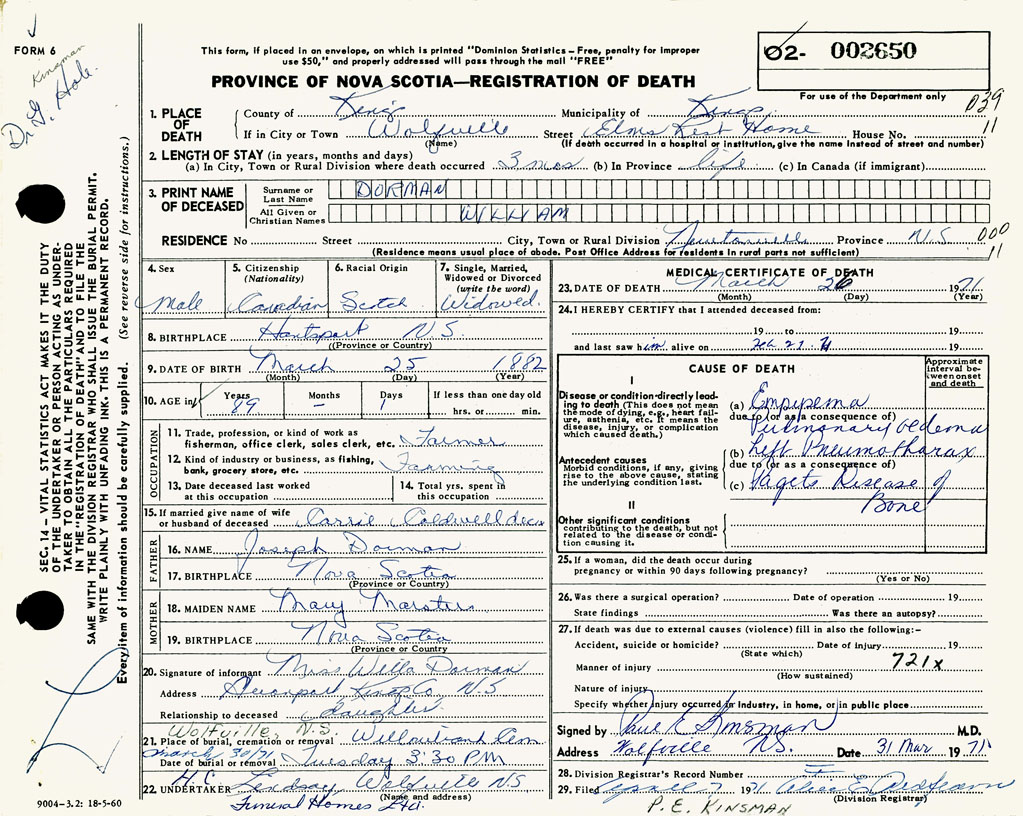 FORM 6
Kinsman
Dr. G. Hole.
This form, if placed in an envelope, on which is printed "Dominion Statistics – Free, penalty for improper
use $50," and properly addressed will pass through the mail "FREE"
PROVINCE OF NOVA SCOTIA—REGISTRATION OF DEATH
02- 002650
For use of the Department only
039
11
1. PLACE OF DEATH
County of Kings Municipality of Kings
If in City or Town Wolfville Street Elms Rest Home House No.
(Name) (If death occurred in a hospital or institution, give the name instead of street and number)
2. LENGTH OF STAY (in years, months and days)
(a) In City, Town or Rural Division where death occurred 3 mos (b) In Province life (c) In Canada (if immigrant)
3. PRINT NAME OF DECEASED
Surname or Last Name DORMAN
All Given or Christian Names WILLIAM
RESIDENCE No. Street City, Town or Rural Division Newtonville Province N.S.
000
11
(Residence means usual place of abode. Post Office Address for residents in rural parts not sufficient)
4. Sex Male
5. Citizenship (Nationality) Canadian
6. Racial Origin Scotch
7. Single, Married, Widowed or Divorced (write the word) Widowed
8. BIRTHPLACE Hantsport N.S.
(Province or Country)
9. DATE OF BIRTH March 25 1882
(Month) (Day) (Year)
10. AGE in Years 89 Months – Days 1 If less than one day old
hrs. or min.
OCCUPATION
11. Trade, profession, or kind of work as
fisherman, office clerk, sales clerk, etc. Farmer
12. Kind of industry or business, as fishing,
bank, grocery store, etc. Farming
13. Date deceased last worked
at this occupation
14. Total yrs. spent in
this occupation
15. If married give name of wife
or husband of deceased Carrie Coldwell dec
FATHER
16. NAME Joseph Dorman
17. BIRTHPLACE Nova Scotia
(Province or Country)
MOTHER
18. MAIDEN NAME Mary Marsters
19. BIRTHPLACE Nova Scotia
(Province or Country
20. Signature of informant Miss Wella Dorman
Address Avonport Kings Co, N.S
Relationship to deceased daughter
Wolfville, N.S.
21. Place of burial, cremation or removal Willowbank Cem
Date of burial or removal March 30/71 Tuesday 3:30 PM
22. UNDERTAKER H.C. Lindsay Wolfville N.S
(Name and address)
Funeral Homes Ltd.
9004-3.2: 18-5-60
MEDICAL CERTIFICATE OF DEATH
23. DATE OF DEATH March 26 1971
(Month) (Day) (Year)
24. I HEREBY CERTIFY that I attended deceased from:
19 to 19
and last saw him alive on 19
CAUSE OF DEATH
Approximate interval between onset and death
I
Disease or condition directly leading to death (This does not mean the mode of dying, e.g., heart failure, asthenia, etc. It means the disease, injury, or complication which caused death.)
(a) Empyema
due to (or as a consequence of)
Pulmonary oedema
Antecedent causes
Morbid conditions, if any, giving rise to the above cause, stating the underlying condition last.
(b) Left Pneumothorax
due to (or as a consequence of)
(c) Pagets Disease of
Bone
II
Other significant conditions
contributing to the death, but not related to the disease or condition causing it.
25. If a woman, did the death occur during
pregnancy or within 90 days following pregnancy?
(Yes or No)
26. Was there a surgical operation? Date of operation 19
State findings Was there an autopsy?
27. If death was due to external causes (violence) fill in also the following:–
Accident, suicide or homicide? Date of injury 19
(State which)
721x
Manner of injury
(How sustained)
Nature of injury
Specify whether injury occurred in industry, in home, or in public place
Signed by Paul E Kinsman M.D.
Address Wolfville N.S. Date 31 Mar 1971
28. Division Registrar's Record Number
29. Filed April 7 1971 Alice E. Redfearn
(Division Registrar)
P. E. KINSMAN
SEC. 14 – VITAL STATISTICS ACT MAKES IT THE DUTY
OF THE UNDERTAKER OR PERSON ACTING AS UNDER-
TAKER TO OBTAIN ALL THE PARTICULARS REQUIRED
IN THE "REGISTRATION OF DEATH" AND TO FILE THE
SAME WITH THE DIVISION REGISTRAR WHO SHALL ISSUE THE BURIAL PERMIT.
WRITE PLAINLY WITH UNFADING INK. THIS IS A PERMANENT RECORD.
Every item of information should be carefully supplied. (See reverse side for instructions.)